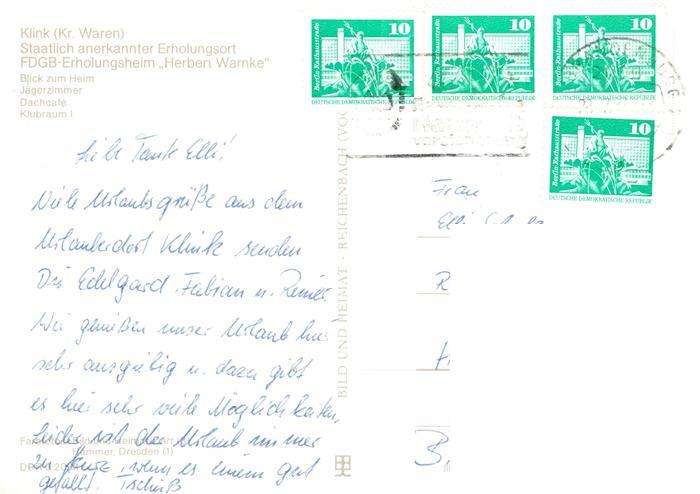 Klink (Kr. Waren)
Staatlich anerkannter Erholungsort
FDGB-Erholungsheim „Herbert Warnke"
Blick zum Heim
Jägerzimmer
Dachcafé
Klubraum I
10
10
10
10
Berlin, Rathausstraße
Berlin, Rathausstraße
Berlin, Rathausstraße
Berlin, Rathausstraße
DEUTSCHE DEMOKRATISCHE REPUBLIK
DEUTSCHE DEMOKRATISCHE REPUBLIK
DEUTSCHE DEMOKRATISCHE REPUBLIK
DEUTSCHE DEMOKRATISCHE REPUBLIK
Liebe Tante Elli!
Viele Urlaubsgrüße aus dem
Urlauberdorf Klink senden
Dir Edelgard, Fabian u.
Wir genießen unser Urlaub hier
sehr ausgiebig u. dazu gibt
es hier sehr viele Möglichkeiten,
leider ist der Urlaub immer
zu, wenn es einem gut
gefällt. Tschüß
BILD UND HEIMAT · REICHENBACH (VO
Frau
R
B
Dresden (1)